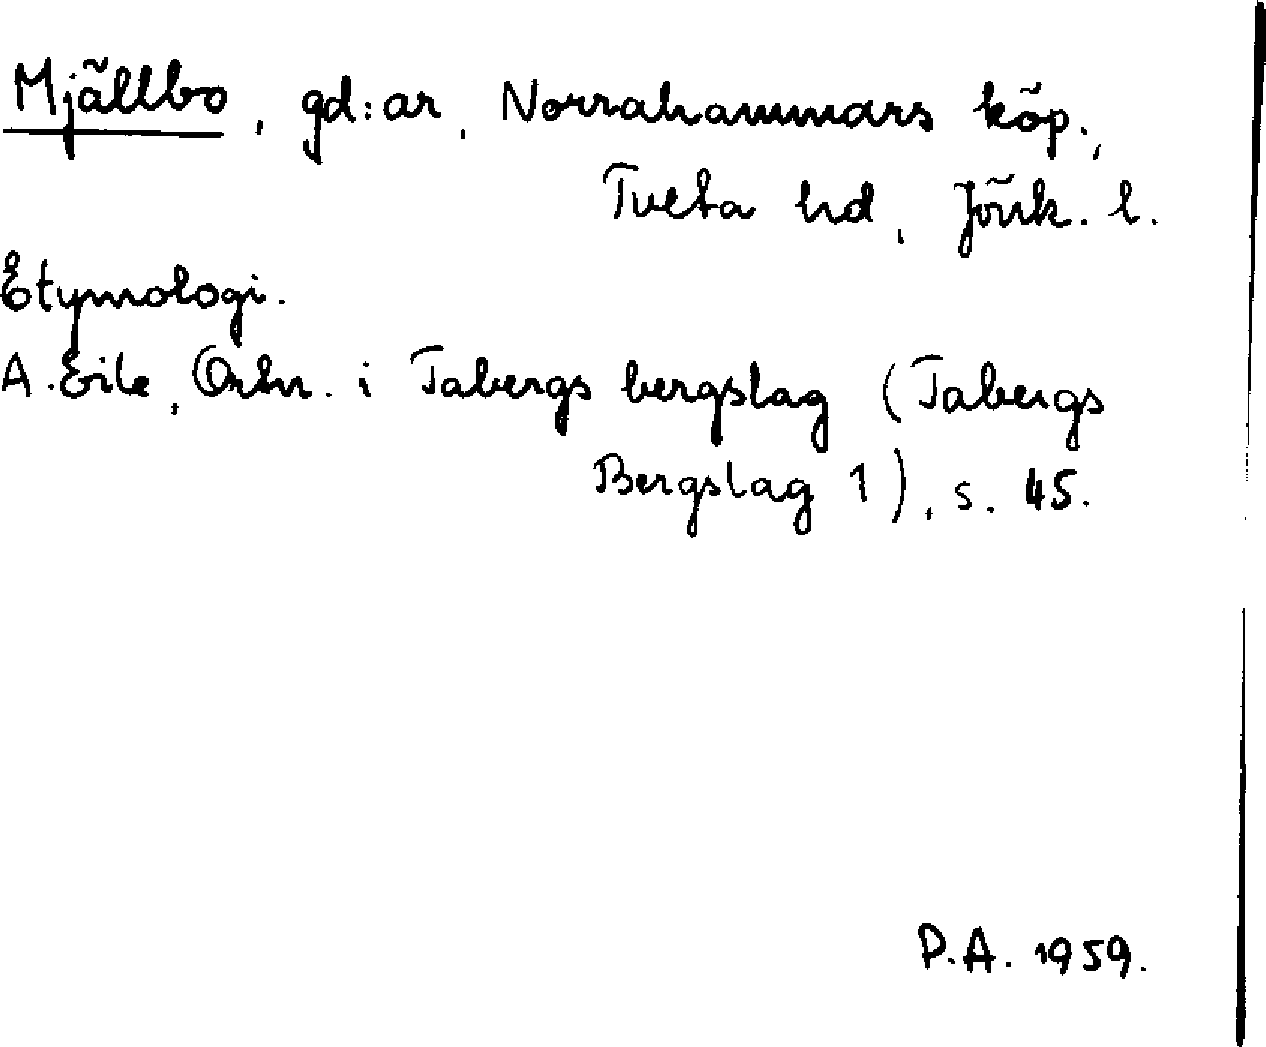 Mjällbo, gd:ar, Norrahammars köp.,
Tveta hd, Jönk. l.
Etymologi.
A. Eile, Ortn. i Tabergs bergslag (Tabergs
Bergslag 1), s. 45.
P.A. 1959.